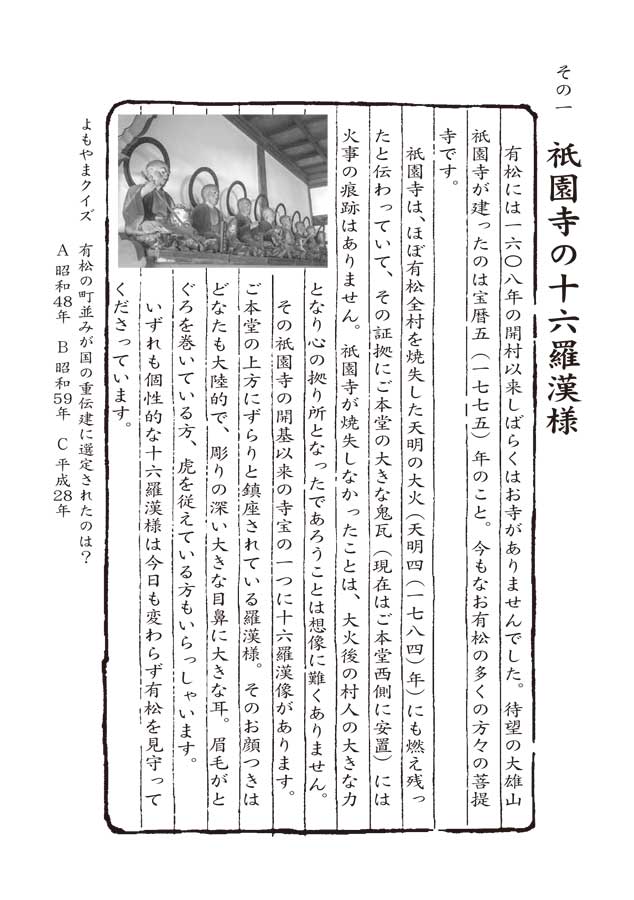 その一
祇園寺の十六羅漢様
有松には一六〇八年の開村以来しばらくはお寺がありませんでした。待望の大雄山
祇園寺が建ったのは宝暦五（一七七五）年のこと。今もなお有松の多くの方々の菩提
寺です。
祇園寺は、ほぼ有松全村を焼失した天明の大火（天明四（一七八四）年）にも燃え残っ
たと伝わっていて、その証拠にご本堂の大きな鬼瓦（現在はご本堂西側に安置）には
火事の痕跡はありません。祇園寺が焼失しなかったことは、大火後の村人の大きな力
となり心の拠り所となったであろうことは想像に難くありません。
その祇園寺の開基以来の寺宝の一つに十六羅漢像があります。
ご本堂の上方にずらりと鎮座されている羅漢様。そのお顔つきは
どなたも大陸的で、彫りの深い大きな目鼻に大きな耳。眉毛がと
ぐろを巻いている方、虎を従えている方もいらっしゃいます。
いずれも個性的な十六羅漢様は今日も変わらず有松を見守って
くださっています。
よもやまクイズ　有松の町並みが国の重伝建に選定されたのは？
A 昭和48年　B 昭和59年　C 平成28年